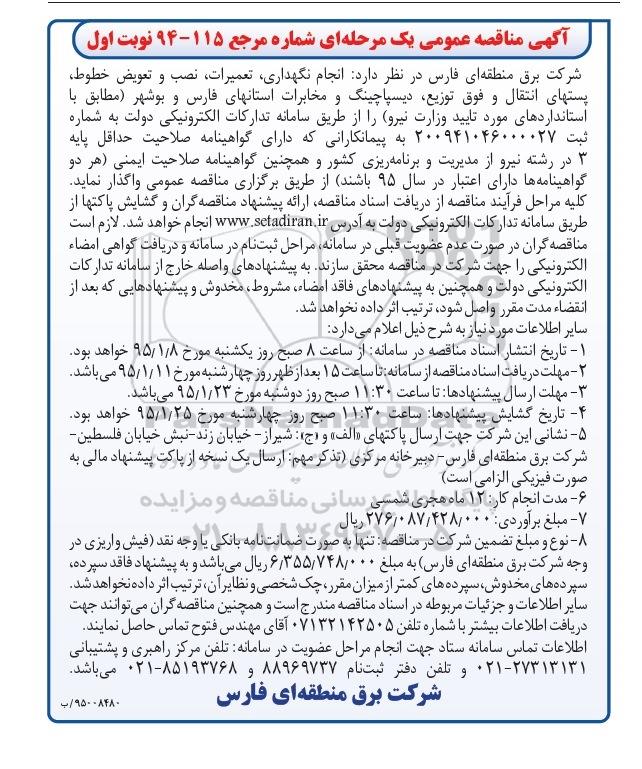 آگهی مناقصه عمومی یک مرحله‌ای شماره مرجع ۱۱۵-۹۴ نوبت اول
شرکت برق منطقه‌ای فارس در نظر دارد: انجام نگهداری، تعمیرات، نصب و تعویض خطوط،
پستهای انتقال و فوق توزیع، دیسپاچینگ و مخابرات استانهای فارس و بوشهر (مطابق با
استانداردهای مورد تایید وزارت نیرو) را از طریق سامانه تدارکات الکترونیکی دولت به شماره
ثبت ۲۰۰۹۴۱۰۴۶۰۰۰۰۲۷ به پیمانکارانی که دارای گواهینامه صلاحیت حداقل پایه
۳ در رشته نیرو از مدیریت و برنامه‌ریزی کشور و همچنین گواهینامه صلاحیت ایمنی (هر دو
گواهینامه‌ها دارای اعتبار در سال ۹۵ باشند) از طریق برگزاری مناقصه عمومی واگذار نماید.
کلیه مراحل فرآیند مناقصه از دریافت اسناد مناقصه، ارائه پیشنهاد مناقصه‌گران و گشایش پاکتها از
طریق سامانه تدارکات الکترونیکی دولت به آدرس www.setadiran.ir انجام خواهد شد. لازم است
مناقصه‌گران در صورت عدم عضویت قبلی در سامانه، مراحل ثبت‌نام در سامانه و دریافت گواهی امضاء
الکترونیکی را جهت شرکت در مناقصه محقق سازند. به پیشنهادهای واصله خارج از سامانه تدارکات
الکترونیکی دولت و همچنین به پیشنهادهای فاقد امضاء، مشروط، مخدوش و پیشنهادهایی که بعد از
انقضاء مدت مقرر واصل شود، ترتیب اثر داده نخواهد شد.
سایر اطلاعات مورد نیاز به شرح ذیل اعلام می‌دارد:
۱- تاریخ انتشار اسناد مناقصه در سامانه: از ساعت ۸ صبح روز یکشنبه مورخ ۹۵/۱/۸ خواهد بود.
۲-مهلت دریافت اسناد مناقصه از سامانه: تا ساعت ۱۵ بعد از ظهر روز چهارشنبه مورخ ۹۵/۱/۱۱ می‌باشد.
۳- مهلت ارسال پیشنهادها: تا ساعت ۱۱:۳۰ صبح روز دوشنبه مورخ ۹۵/۱/۲۳ می‌باشد.
۴- تاریخ گشایش پیشنهادها: ساعت ۱۱:۳۰ صبح روز چهارشنبه مورخ ۹۵/۱/۲۵ خواهد بود.
۵- نشانی این شرکت جهت ارسال پاکتهای «الف» و «ج»: شیراز- خیابان زند-نبش خیابان فلسطین-
شرکت برق منطقه‌ای فارس- دبیرخانه مرکزی (تذکر مهم: ارسال یک نسخه از پاکت پیشنهاد مالی به
صورت فیزیکی الزامی است)
۶- مدت انجام کار: ۱۲ ماه هجری شمسی
۷- مبلغ برآوردی: ۲۷۶/۰۸۷/۴۲۸/۰۰۰ ریال
۸- نوع و مبلغ تضمین شرکت در مناقصه: تنها به صورت ضمانت‌نامه بانکی یا وجه نقد (فیش واریزی در
وجه شرکت برق منطقه‌ای فارس) به مبلغ ۶/۳۵۵/۷۴۸/۰۰۰ ریال می‌باشد و به پیشنهاد فاقد سپرده،
سپرده‌های مخدوش، سپرده‌های کمتر از میزان مقرر، چک شخصی و نظایر آن، ترتیب اثر داده نخواهد شد.
سایر اطلاعات و جزئیات مربوطه در اسناد مناقصه مندرج است و همچنین مناقصه‌گران می‌توانند جهت
دریافت اطلاعات بیشتر با شماره تلفن ۰۷۱۳۲۱۴۲۵۰۵ آقای مهندس فتوح تماس حاصل نمایند.
اطلاعات تماس سامانه ستاد جهت انجام مراحل عضویت در سامانه: تلفن مرکز راهبری و پشتیبانی
۰۲۱-۲۷۳۱۳۱۳۱ و تلفن دفتر ثبت‌نام ۸۸۹۶۹۷۳۷ و ۸۵۱۹۳۷۶۸-۰۲۱ می‌باشد.
شرکت برق منطقه‌ای فارس
۹۵۰۰۸۴۸۰/ب